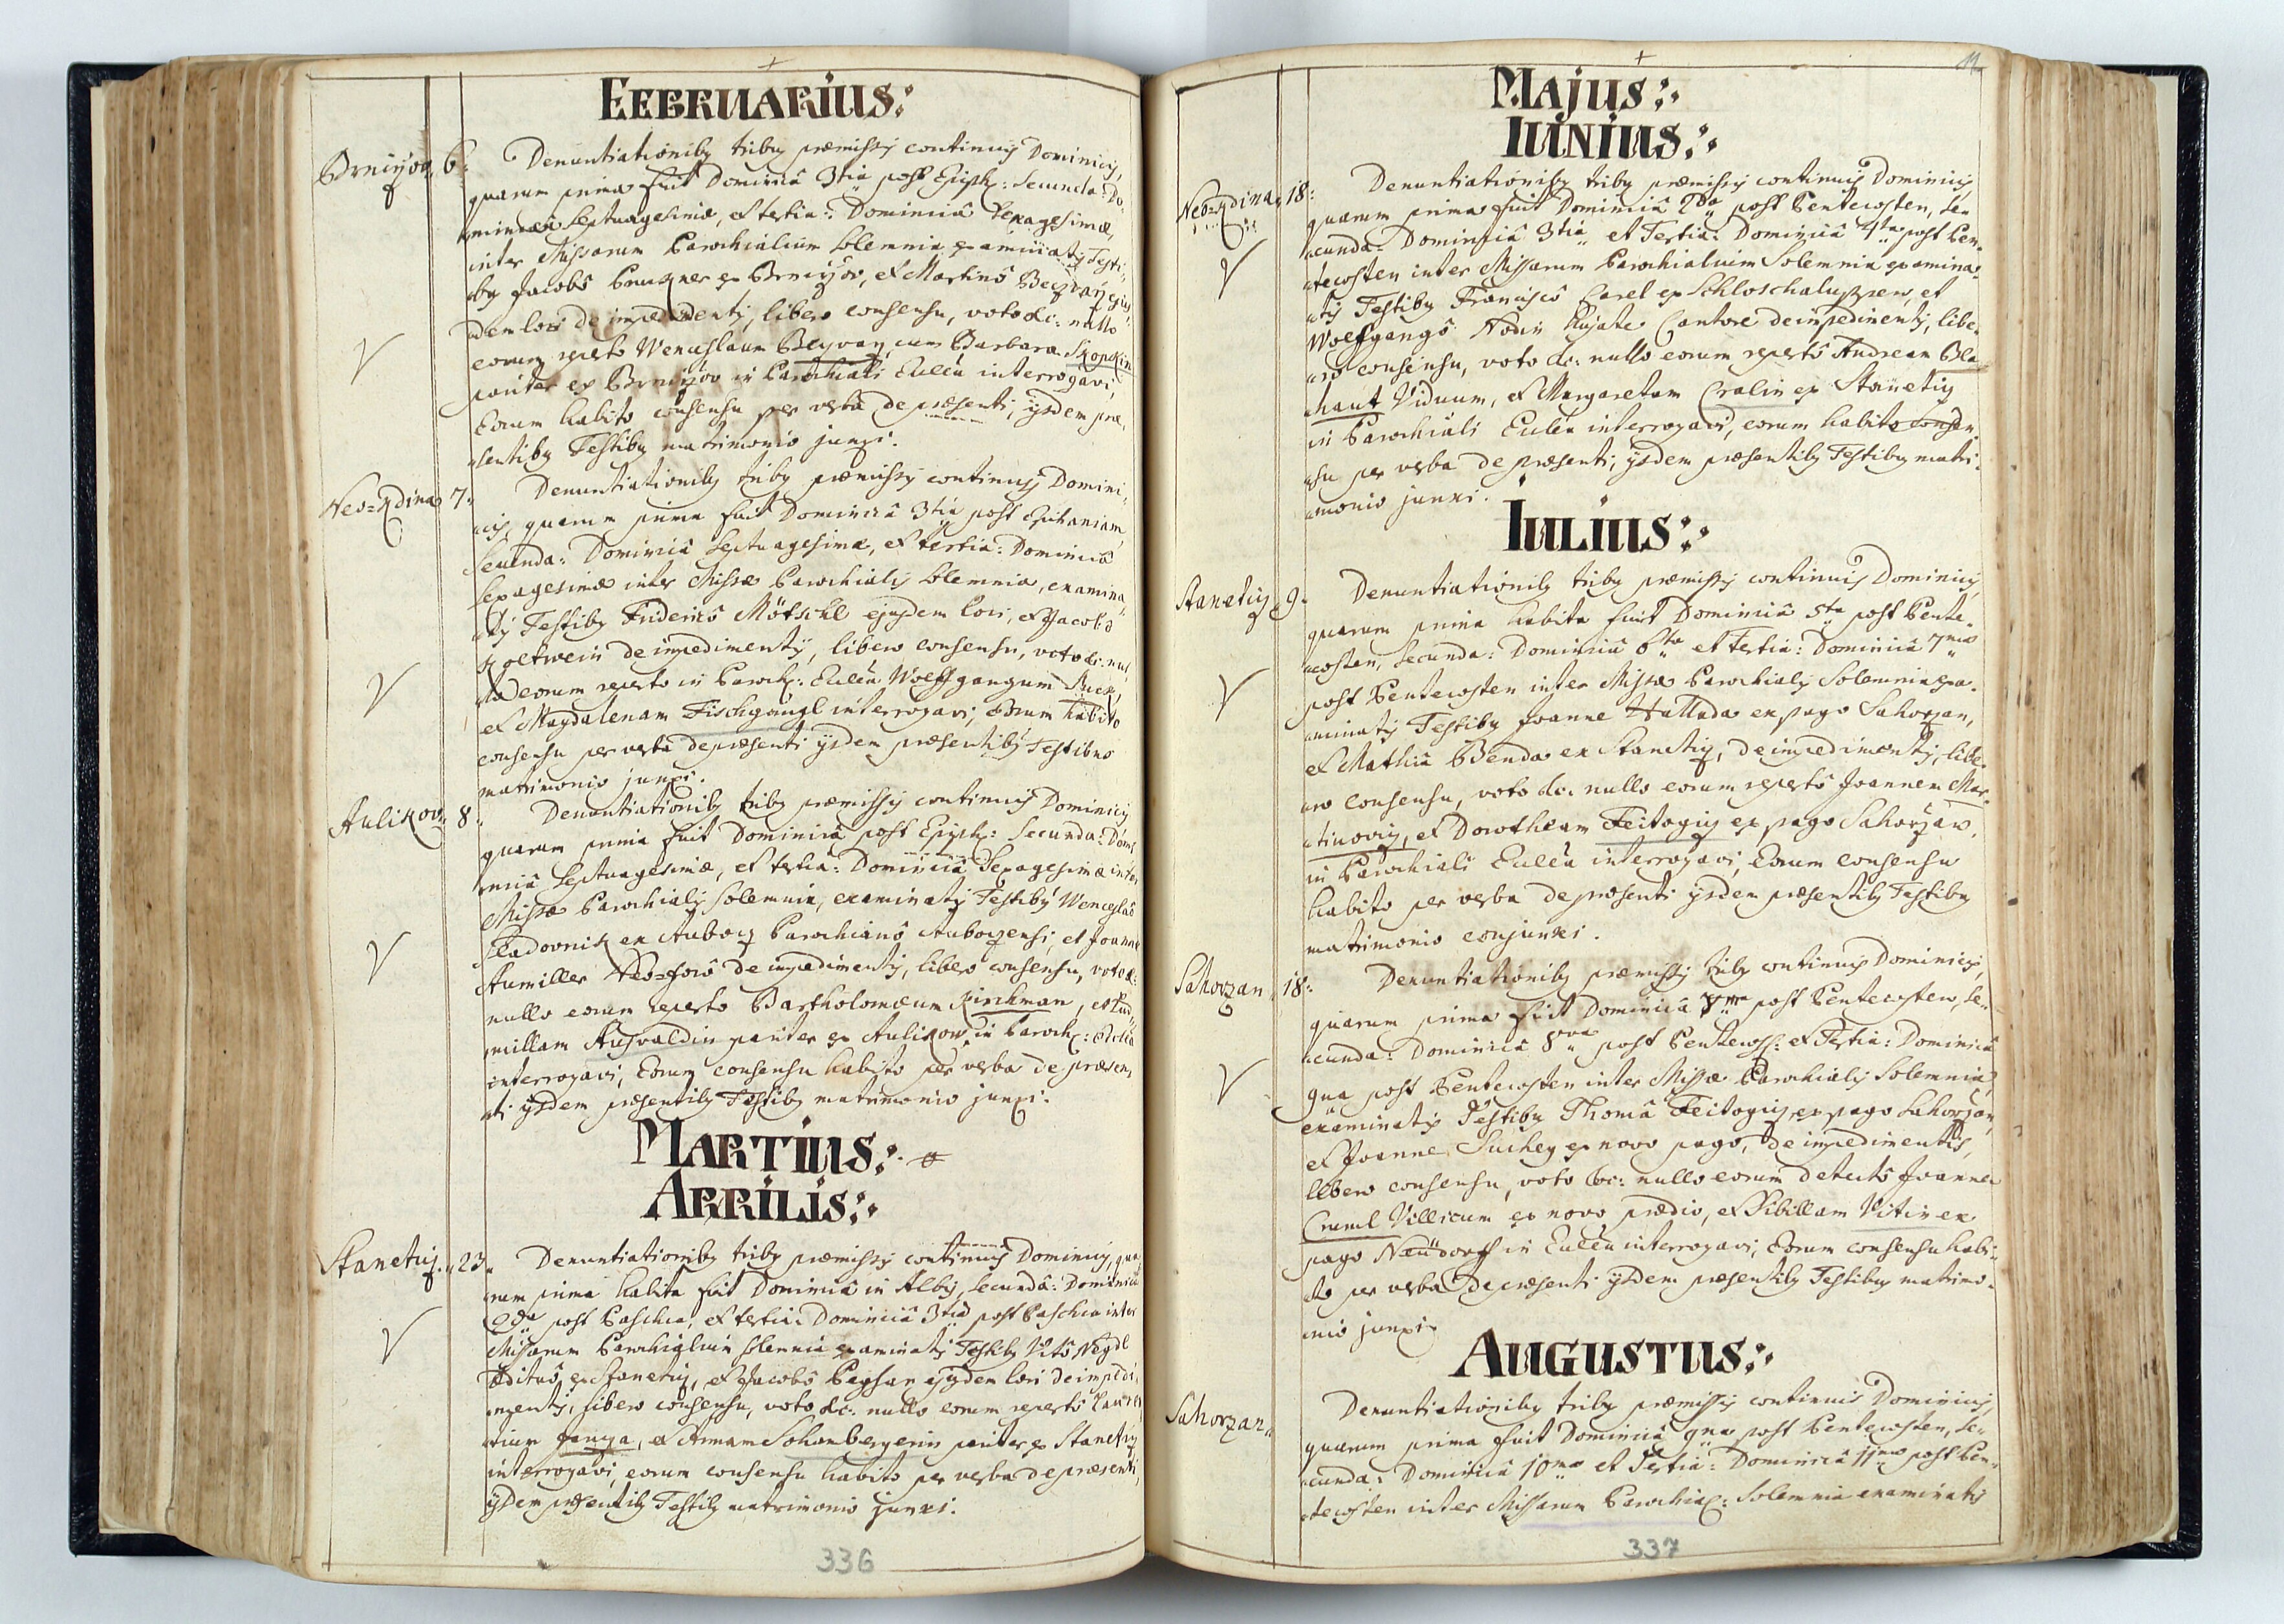 FEBRUARIUS:
Denuntiationibg tribg præmissis continuis Dominicis,
quarum prima fuit Dominicâ 3tia post Epiph: Secunda: Do-
minica Septuagesimæ, et tertia: Dominicâ Sexagesimæ,
inter Missarum Parochialium Solemnia, examinatis Testi-
bg Jacobô ex Brnizov, et Martinô
dem loci de impedimentis, libero consensu, voto &c: nullo
eorum reperto Wenceslaum cum Barbara
pariter ex Brnizov in Parochiali Ecclîa interrogavi,
Eorum habito consensu per verba de præsenti, ijsdem præ-
sentibg Testibg matrimonio junxi.
Neo=Zdina 7
Denuntiationibg tribg præmissis continuis Domini-
cis, quarum prima fuit Dominicâ 3tia post Epihaniam,
Secunda: Dominicâ Septuagesimæ, et tertia: Dominicâ
Sexagesimæ inter Missæ Parochialis Solemnia, examina-
tis Testibg Fridericô Mötschl ejusdem loci, et Jacobô
de impedimentis, libero consensu, voto &c: nul-
lo eorum reperto in Paroch: Ecclîa Wolffgangum
et Magdalenam Fischgängl interrogavi, Eorum habito
consensu per verba de præsenti ijsdem præsentibg Testibus
matrimonio junxi.
Aulikov 8
Denuntiationibg tribg præmissis continuis Dominicis
quarum prima fuit Dominicâ post Epiph: Secunda: Domi-
nicâ Septuagesimæ, et tertia: Dominicâ Sexagesimæ inter
Missæ Parochialis Solemnia, examinatis Testibg Wenceslaô
ex Aubocz Parochianô Auboczensi, et Joanne
Aumiller Neo=forô de impedimentis, libero consensu, voto &:
nullo eorum reperto Bartholomæum Kirchman, et Lud-
millam pariter ex Aulikow in Paroch: Ecclîa
interrogavi, Eorum consensu habito per verba de præsen-
ti ijsdem præsentibg Testibg matrimonio junxi.
MARTIUS:
APRILIS:
Stanetiz 23
Denuntiationibg tribg præmissis continuis Dominicis, qua-
rum prima habita fuit Dominicâ in Albis, Secunda: Dominicâ
2da post Pascha, et tertia: Dominicâ 3tia post Pascha inter
Missarum Parochialium Solemnia examinatis Testibg Vitô
Ædituô ex Stanetiz, et Jacobô ejusdem loci de impedi-
mentis, libero consensu, voto &c: nullo eorum reperto Lauren-
tium et Annam Schambergerin pariter ex Stanetiz
interrogavi, eorum consensu habito per verba de præsenti,
ijsdem præsentibg Testibg matrimonio junxi.
336
MAJUS:
IUNIUS:
Neo=Zdina 18:
Denuntiationibg tribg præmissis continuis Dominicis
quarum prima fuit Dominicâ 2da post Pentecosten, Se-
cunda: Dominicâ 3tia et Tertia: Dominicâ 4ta post Pen-
tecosten inter Missarum Parochialium Solemnia examina-
tis Testibg Franciscô Carel ex et
Wolfgangô Cantore de impedimentis, libe-
ro consensu, voto &c: nullo eorum repertô Andream Bla-
haut Viduum, et Margaretam Cralin ex Stanetiz
in Parochiali Ecclîa interrogavi, eorum habito consen-
su per verba de præsenti, ijsdem præsentibg Testibg matri-
monio junxi.
IULIUS:
Stanetiz 9
Denuntiationibg tribg præmissis continuis Dominicis
quarum prima habita fuit Dominicâ 5ta post Pente-
costen, Secunda: Dominicâ 6ta et tertia: Dominicâ 7ma
post Pentecosten inter Missæ Parochialis Solemnia exa-
minatis Testibg Joanne Hallada ex pago Sahorzan,
et Mathia Benda ex Stanetiz, de impedimentis, libe-
ro consensu, voto &c: nullo eorum repertô Joannem Mar-
tinoviz, et Dorotheam Feitogiz ex pago Sahorzan,
in Parochiali Ecclîa interrogavi, Eorum consensu
habito per verba de præsenti ijsdem præsentibg Testibg
matrimonio conjunxi.
Sahorzan 18:
Denuntiationibg præmissis tribg continuis Dominicis,
quarum prima fuit Dominicâ 7ma post Pentecosten, Se-
cunda: Dominicâ 8va post Pentecos: et Tertia: Dominicâ
9na post Pentecosten inter Missæ Parochialis Solemnia,
examinatis Testibg Thomâ Feitogiz ex pago Sahorzan,
et Joanne Suchey ex novo pago, de impedimentis,
libero consensu, voto &c: nullo eorum detectô Joannem
Villicum ex novo prædio, et Sibillam Vitin ex
pago Neüdorff in Ecclîa interrogavi, Eorum consensu habi-
to per verba de præsenti ijsdem præsentibg Testibg matrimo-
nio junxi.
AUGUSTUS:
Sahorzan
Denuntiationibg tribg præmissis continuis Dominicis,
quarum prima fuit Dominicâ 9na post Pentecosten, Se-
cunda: Dominicâ 10ma et Tertia: Dominicâ 11ma post Pen-
tecosten inter Missarum Parochial: Solemnia examinatis
337